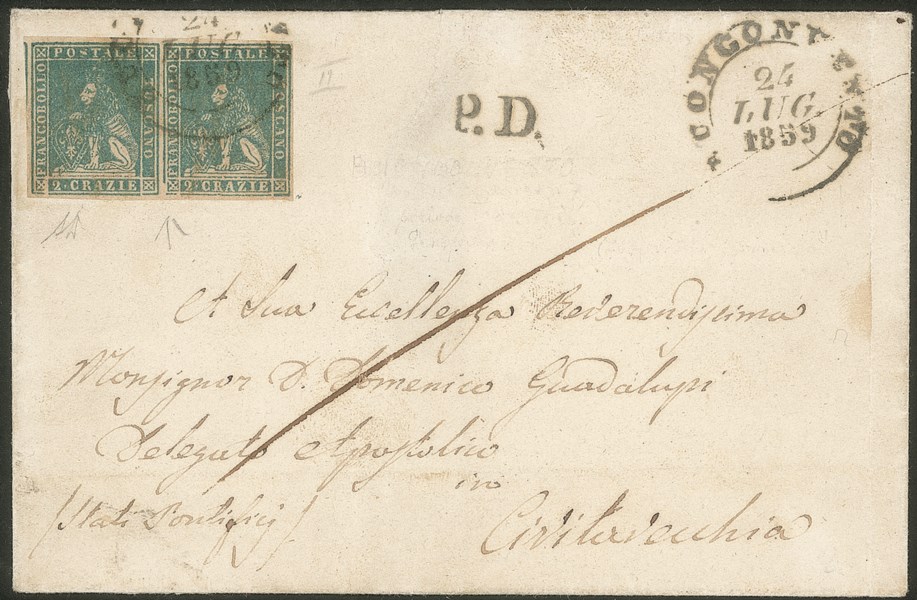 FRANCOBOLLO POSTALE TOSCANO
2 CRAZIE
FRANCOBOLLO POSTALE TOSCANO
2 CRAZIE
24
LUG
1859
P.D.
24
LUG
1859
A Sua Eccellenza Reverendissima
Monsignor D. Domenico Guadalupi
Delegato Apostolico
in
/Stati Pontificj/
Civitavecchia